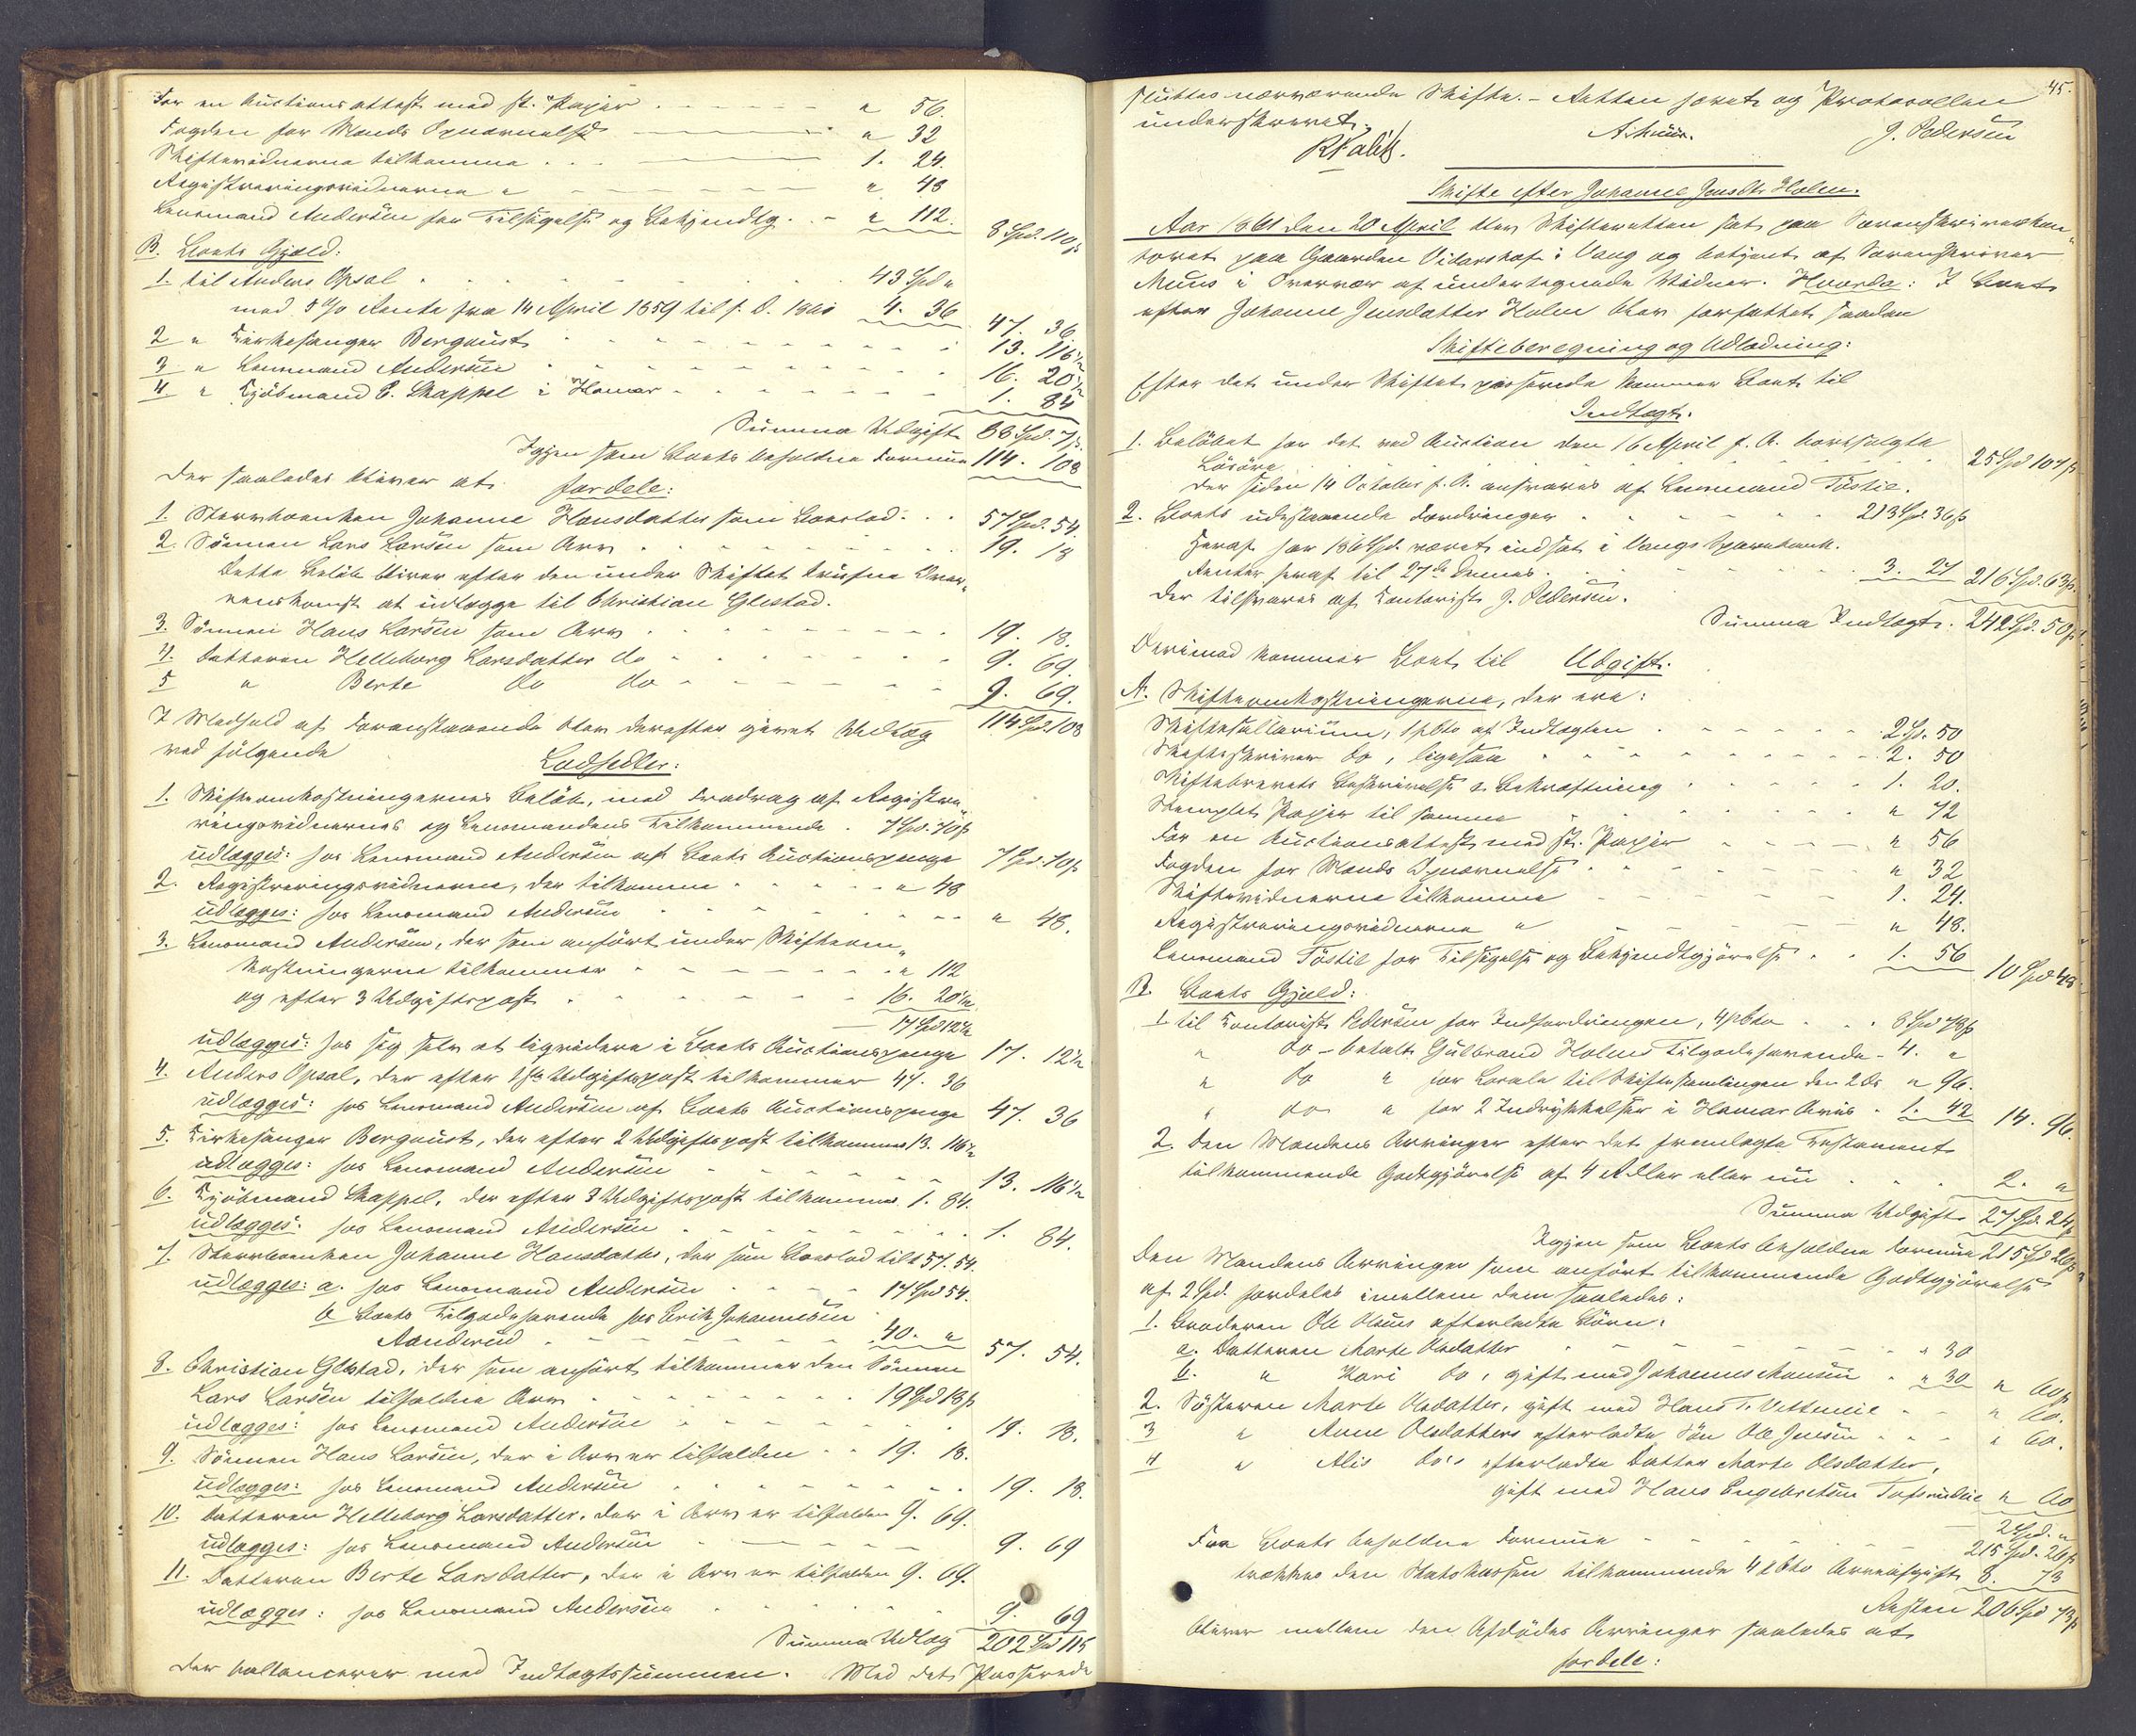 For en Auctionsattest med st. Papir . . . " 56.
Fogden for Mænds Opnævnelse " 32
Skiftevidnerne tilkomme . . . 1. 24.
Registreringsvidnerne " " 48
Lensmand Andersen for Tilsigelse og Bekjendtg. . " 112. 8 Spd. 110 ß
B. Boets Gjæld:
1. til Anders Opsal . . . 43 Spd "
med 5 % Rente fra 14 April 1859 til s. D. 1861 4. 36 47. 36
2 " Kirkesanger Bergqvist . . . 13. 116½
3 " Lensmand Andersen . . . 16. 20½
4 " Kjöbmand C. Skappel i Hamar . . . 1. 84
Summa Udgift 88 Spd. 7 ß
Igjen som Boets beholdne Formue 114. 108
der saaledes bliver at fordele:
1. Stervboenken Johanne Hansdatter som Boeslod . . . 57 Spd. 54.
2. Sönnen Lars Larsen som Arv . . . 19. 18
Dette Belöb bliver efter den under Skiftet trufne Over„
eenskomst at udlægge til Christian Glestad.
3. Sönnen Hans Larsen som Arv . . . 19. 18.
4. Datteren Helleborg Larsdatter do . . . 9. 69.
5 " Berte do do . . . 9. 69.
114 Spd. 108
I Medhold af Foranstaaende blev derefter gjort Udlæg
ved fölgende Lodsedler:
1. Skifteomkostningernes Belöb, med Fradrag af Registre„
ringsvidnernes og Lensmandens Tilkommende . 7 Spd. 70 ß
udlægges: hos Lensmand Andersen af Boets Auctionspenge 7 Spd. 70 ß
2. Registreringsvidnerne, der tilkomme . . . " 48
udlægges: hos Lensmand Andersen . . . " 48.
3. Lensmand Andersen, der som anfört under Skifteom„
kostningerne tilkommer . . . " 112
og efter 3 Udgiftspost . . . 16. 20½
17 Spd 12½
udlægges: hos sig selv at liqvidere i Boets Auctionspenge 17. 12½
4. Anders Opsal, der efter 1ste Udgiftspost tilkommer 47. 36
udlægges: hos Lensmand Andersen af Boets Auctionspenge 47. 36
5. Kirkesanger Bergqvist, der efter 2 Udgiftspost tilkommer 13. 116½
udlægges: hos Lensmand Andersen . . . 13. 116½
6. Kjöbmand Skappel, der efter 3 Udgiftspost tilkommer. 1. 84.
udlægges: hos Lensmand Andersen . . . 1. 84.
7. Stervboenken Johanne Hansdatter, der som Boeslod tilk 57. 54.
udlægges: a. hos Lensmand Andersen . . . 17 Spd 54.
b Boets Tilgodehavende hos Erik Johannesen
Aanderud . . . 40. " 57. 54.
8. Christian Glestad, der som anfört tilkommer den Sönnen
Lars Larsen tilfaldne Arv . . . 19 Spd 18 ß
udlægges: hos Lensmand Andersen . . . 19. 18.
9. Sönnen Hans Larsen, der i Arv er tilfalden . . 19. 18.
udlægges: hos Lensmand Andersen . . . 19. 18.
10. Datteren Helleborg Larsdatter, der i Arv er tilfalden 9. 69.
udlægges: hos Lensmand Andersen . . . 9. 69
11. Datteren Berte Larsdatter, der i Arv er tilfalden 9. 69.
udlægges: hos Lensmand Andersen . . . 9. 69
Summa Udlæg 202 Spd 115
der ballancerer med Indtægtssummen. Med det Passerede
45.
sluttes nærværende Skifte. – Retten hævet og Protocollen
underskrevet.
A. Munis. J. Pedersen
Skifte efter Johanne Jensdtr Holen.
Aar 1861 den 20 April blev Skifteretten sat paa Sorenskriverkon„
toret paa Gaarden Vidarshof i Vang og betjent af Sorenskriver
Munis i Overvær af undertegnede Vidner. Hvorda: I Boet
efter Johanne Jensdatter Holen blev forfattet saadan
Skifteberegning og Udlodning:
Efter det under Skiftet passerede kommer Boet til
Indtægt.
1. Belöbet for det ved Auction den 16 April f. A. bortsolgte
Lösöre . . . 25 Spd 107 ß
der siden 14 October f. A. ansvares af Lensmand Töstie.
2. Boets udestaaende Fordringer . . . 213 Spd. 36 ß
heraf har 186 Spd. været indsat i Vangs Sparebank.
Renter heraf til 27de dennes . . . 3. 27 216 Spd. 63 ß.
der tilsvares af Kontorist J. Pedersen.
Summa Indtægt. 242 Spd. 50 ß
Derimod kommer Boet til Udgift.
A. Skifteomkostningerne, der ere:
Skiftesallarium, 1 pCto af Indtægten . . . 2 Sp. 50
Skifteskriver do, ligesaa . . . 2. 50
Skiftebrevets Beskrivelse & Bekræftning . . . 1. 20.
Stemplet Papir til samme . . . " 72
For en Auctionsattest med st. Papir . . . " 56
Fogden for Mænds Opnævnelse . . . " 32
Skiftevidnerne tilkomme . . . 1. 24.
Registreringsvidnerne " . . . " 48.
Lensmand Töstie for Tilsigelse og Bekjendtgjörelse . . 1. 56 10 Spd 48
B. Boets Gjæld:
1 til Kontorist Pedersen for Indfordringen, 4 pCto . . . 8 Spd 78 ß
" do – betalt Gulbrand Holens Tilgodehavende – 4. "
" do " for Locale til Skiftesamlingen den 2 " 96.
" do " for 2 Indrykkelser i Hamar Avis . 1. 42 14. 96.
2. Den Mandens Arvinger efter det fremlagte Testament
tilkommende Godtgjörelse af 4 eller nu . . . 2. "
Summa Udgift 27 Spd. 24 ß
Igjen som Boets beholdne Formue 215 Spd 26 ß
Den Mandens Arvinger som anfört tilkommende Godtgjörelse
af 2 Spd. fordeles imellem dem saaledes:
1. Broderen Ole Olsens efterladte Börn:
a. Datteren Marte Olsdatter . . . " 30
b. " Kari do, gift med Johannes Monsen . " 30 " 60 ß
2. Sösteren Marte Olsdatter, gift med Hans T. Vettenie . . " 60.
3 " Anne Olsdatters efterladte Sön Ole Jensen . . . " 60.
4 " Alis do's efterladte Datter Marte Olsdatter,
gift med Hans Engebretsen " 60
2 Spd. "
Fra Boets beholdne Formue . . . 215 Spd. 26 ß
trækkes den Statskassen tilkommende 4 pCto Arveafgift 8. 73
Resten 206 Spd 73 ß
bliver mellem den Afdödes Arvinger saaledes at
fordele: